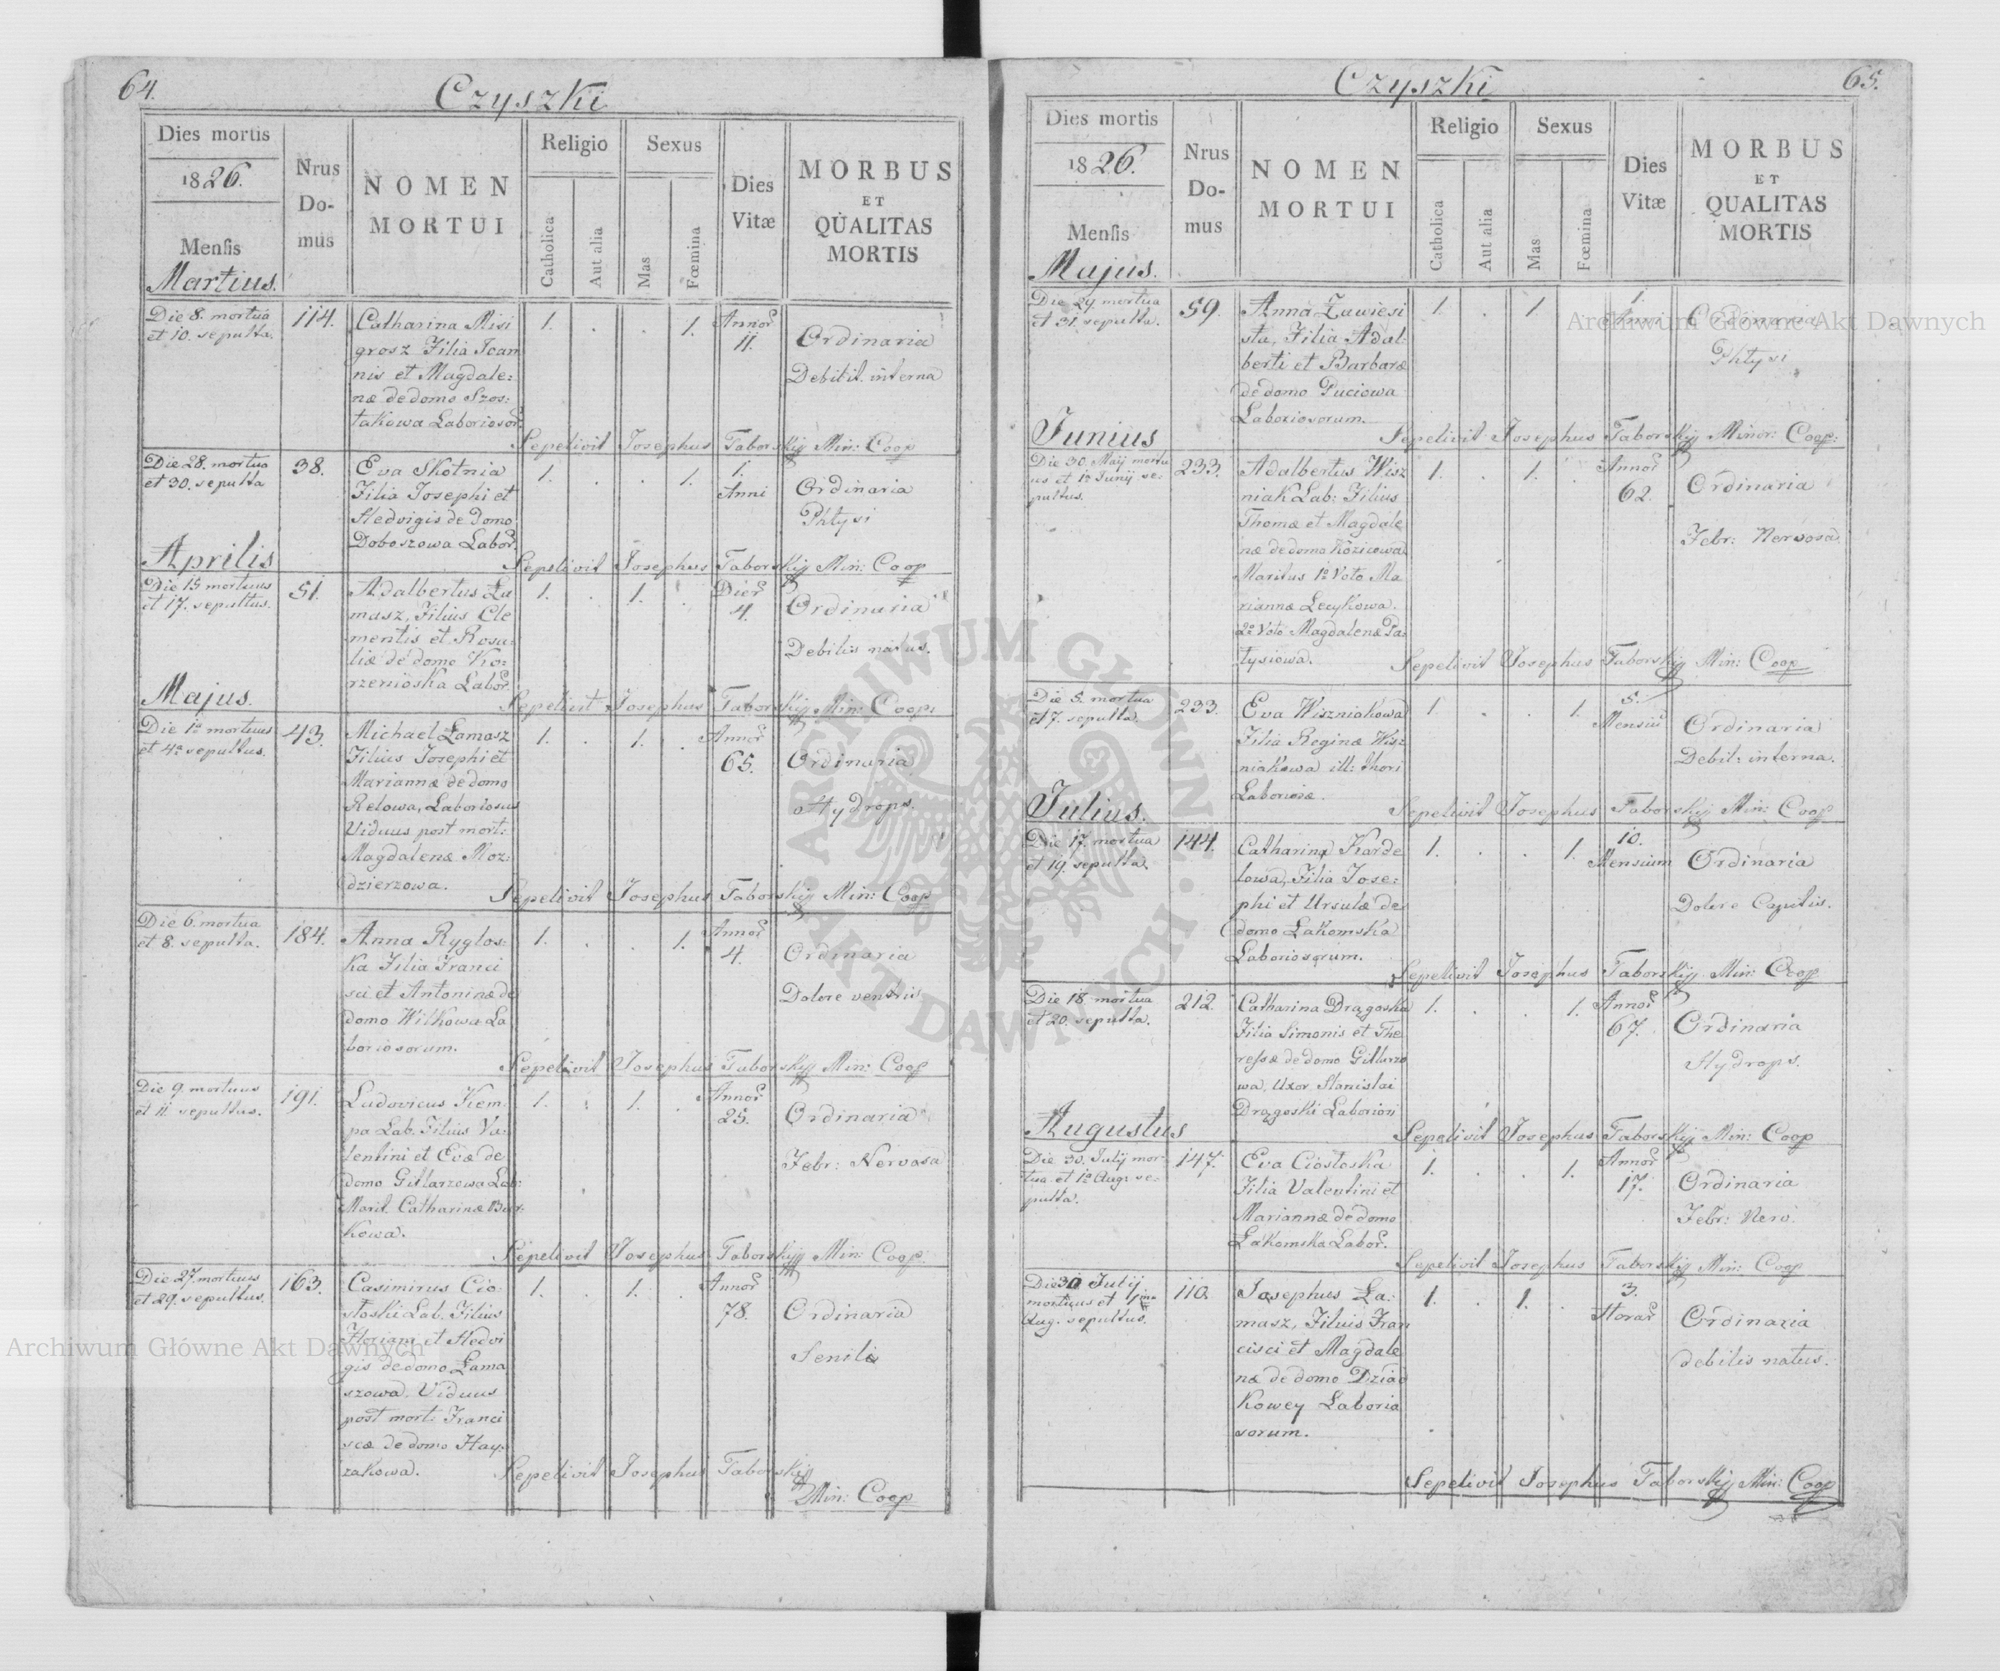 64.
Czyszki
Dies mortis
1826.
Mensis
Martius.
Nrus
Do-
mus
NOMEN
MORTUI
Religio
Catholica
Aut alia
Sexus
Mas
Fœmina
Dies
Vitæ
MORBUS
ET
QUALITAS
MORTIS
Die 8. mortua
et 10. sepulta.
114.
Catharina Misi
grosz Filia Joan
nis et Magdale:
næ de domo Szos:
takowa Laborioso.
1. . . 1.
Annor
11.
Ordinaria
Debilit. interna
Sepelivit Josephus Taborskij Min: Coop
Die 28. mortua
et 30. sepulta
38.
Eva Skotnia
Filia Josephi et
Hedvigis de Domo
Doboszowa Labor.
1. . . 1.
1.
Anni
Ordinaria
Phtysi
Sepelivit Josephus Taborskij Min: Coop
Aprilis
Die 15 mortuus
et 17. sepultus.
51.
Adalbertus Ła
masz, Filius Cle
mentis et Rosa:
liæ de domo Ko:
rzenioska Labor
1. . 1. .
Dier
4.
Ordinaria
Debilis natus.
Sepelivit Josephus Taborskij Min: Coop:
Majus.
Die 1a mortuus
et 4a sepultus.
43.
Michael Łamasz
Filius Josephi et
Mariannæ de domo
Relowa, Laboriosus
Viduus post mort:
Magdalenæ Moz:
dzierzowa.
1. . 1. .
Annor
65.
Ordinaria
Hydrops.
Sepelivit Josephus Taborskij Min: Coop
Die 6. mortua
et 8. sepulta.
184.
Anna Ryglos:
ka Filia Franci
sci et Antoninæ de
domo Wilkowa La
boriosorum.
1. . . 1.
Annor
4.
Ordinaria
Dolore ventris
Sepelivit Josephus Taborskij Min: Coop
Die 9 mortuus
et 11. sepultus.
191.
Ludovicus Kem
pa Lab. Filius Va:
lentini et Evæ de
domo Gitlarzowa Lab:
Marit. Catharinæ Bar
kowa.
1. . 1. .
Annor
25.
Ordinaria
Febr: Nervosa
Sepelivit Josephus Taborskij Min: Coop.
Die 27. mortuus
et 29. sepultus.
163.
Casimirus Cio:
stoski Lab. Filius
Floriani et Hedvi
gis de domo Łama
szowa, Viduus
post mort: Franci
scæ de domo Hay:
zakowa.
1. . 1. .
Annor
78.
Ordinaria
Senilis
Sepelivit Josephus Taborskij
Min: Coop
65.
Czyszki
Dies mortis
1826.
Mensis
Majus.
Nrus
Do-
mus
NOMEN
MORTUI
Religio
Catholica
Aut alia
Sexus
Mas
Fœmina
Dies
Vitæ
MORBUS
ET
QUALITAS
MORTIS
Die 29 mortua
et 31. sepulta.
59.
Anna Zawiesi
sta, Filia Adal:
berti et Barbaræ
de domo Puciowa
Laboriosorum.
1. . 1.
1.
Anni
Ordinaria
Phtysi
Sepelivit Josephus Taborskij Minor: Coop:
Junius
Die 30. Maij mortu
us et 1a Junij se:
pultus.
233.
Adalbertus Wisz
niak Lab: Filius
Thomæ et Magdale
næ de domo Kozicowa
Maritus 1o Voto Ma
riannæ Lecykowa.
2o Voto Magdalenæ Pa:
tysiowa.
1. . 1. .
Annor
62.
Ordinaria
Febr: Nervosa
Sepelivit Josephus Taborskij Min: Coop
Die 5. mortua
et 7. sepulta.
233.
Eva Wiszniakowa
Filia Reginæ Wisz
niakowa ill: thori
Laboriosæ.
1. . . 1.
5.
Mensiu
Ordinaria
Debil: interna.
Sepelivit Josephus Taborskij Min: Coop
Julius.
Die 17. mortua
et 19. sepulta.
144.
Catharina Karde
lowa, Filia Jose:
phi et Ursulæ de
domo Łakomska
Laboriosorum.
1. . . 1.
10.
Mensium
Ordinaria
Dolore Capitis.
Sepelivit Josephus Taborskij Min: Coop
Die 18. mortua
et 20. sepulta.
212.
Catharina Dragoska
Filia Simonis et The
resæ de domo Gitlarzo
wa, Uxor Stanislai
Dragoski Laboriosi
1. . . 1.
Annor
67.
Ordinaria
Hydrops.
Sepelivit Josephus Taborskij Min: Coop
Augustus
Die 30. Julij mor:
tua et 1a Aug: se:
pulta.
147.
Eva Ciostoska
Filia Valentini et
Mariannæ de domo
Łakomska Labor.
1. . . 1.
Annor
17.
Ordinaria
Febr: Nerv.
Sepelivit Josephus Taborskij Min: Coop
Die 30 Julij
mortuus et 1ma
Aug. sepultus.
110.
Josephus Ła:
masz, Filuis Fran
cisci et Magdale
næ de domo Dziad
kowey Laborio
sorum.
1. . 1. .
3.
Horar
Ordinaria
debilis natus.
Sepelivit Josephus Taborskij Min: Coop
Archiwum Główne Akt Dawnych
Archiwum Główne Akt Dawnych
ARCHIWUM GŁÓWNE AKT DAWNYCH